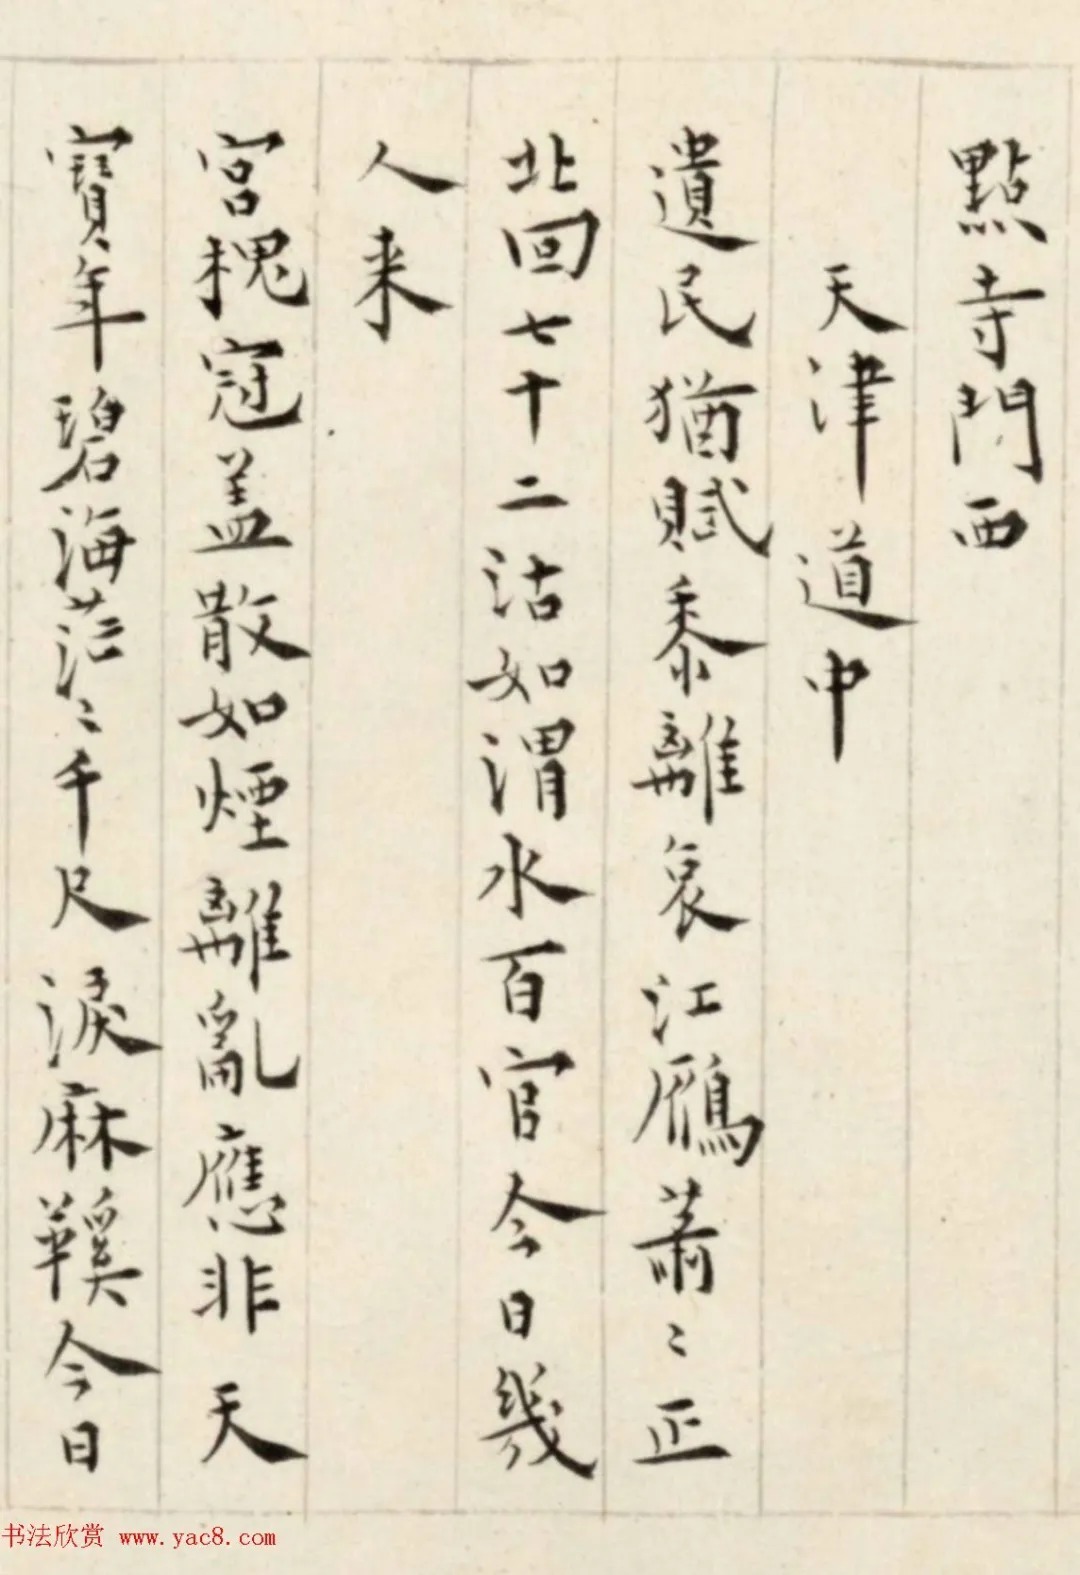 點寺門西
天津道中
遺民猶賦黍離哀江鴈蕭〻正
北回七十二沽如渭水百官今日幾
人来
宮槐冠盖散如煙離亂應非天
寶年碧海茫〻千尺淚麻鞵今日
书法欣赏 www.yac8.com